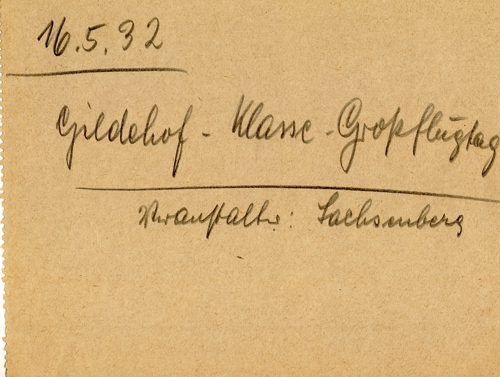 16.5.32
Gildehof - Klasse - Großflugtag
Veranstalter: Sachsenberg